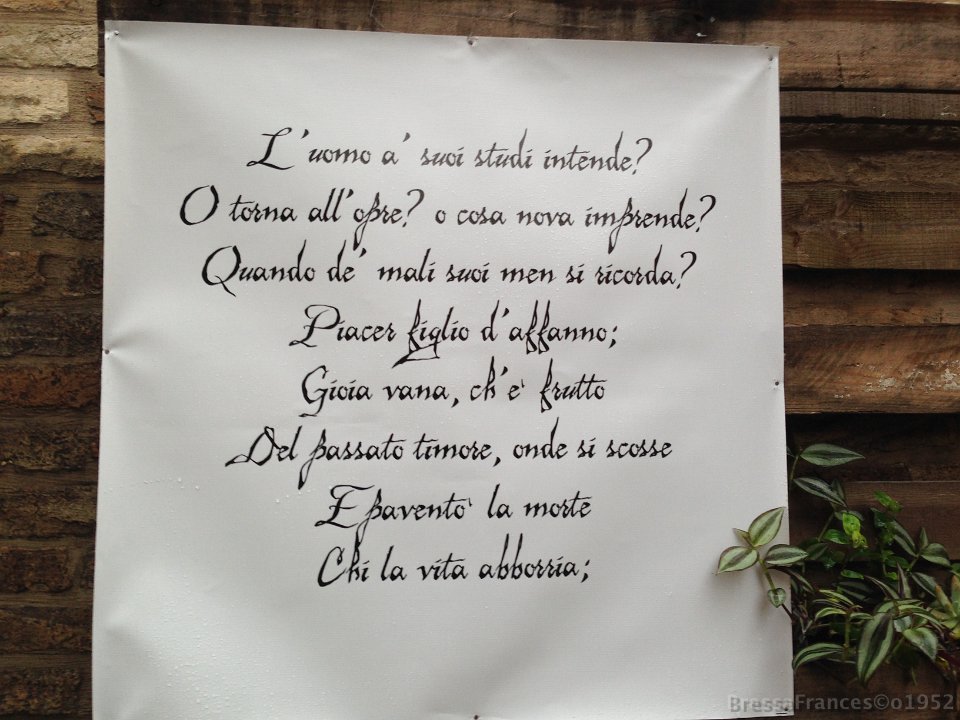 L'uomo a' suoi studi intende?
O torna all'opre? o cosa nova imprende?
Quando de' mali suoi men si ricorda?
Piacer figlio d'affanno;
Gioia vana, ch'e` frutto
Del passato timore, onde si scosse
E pavento` la morte
Chi la vita abborria;
BressaFrances©o1952